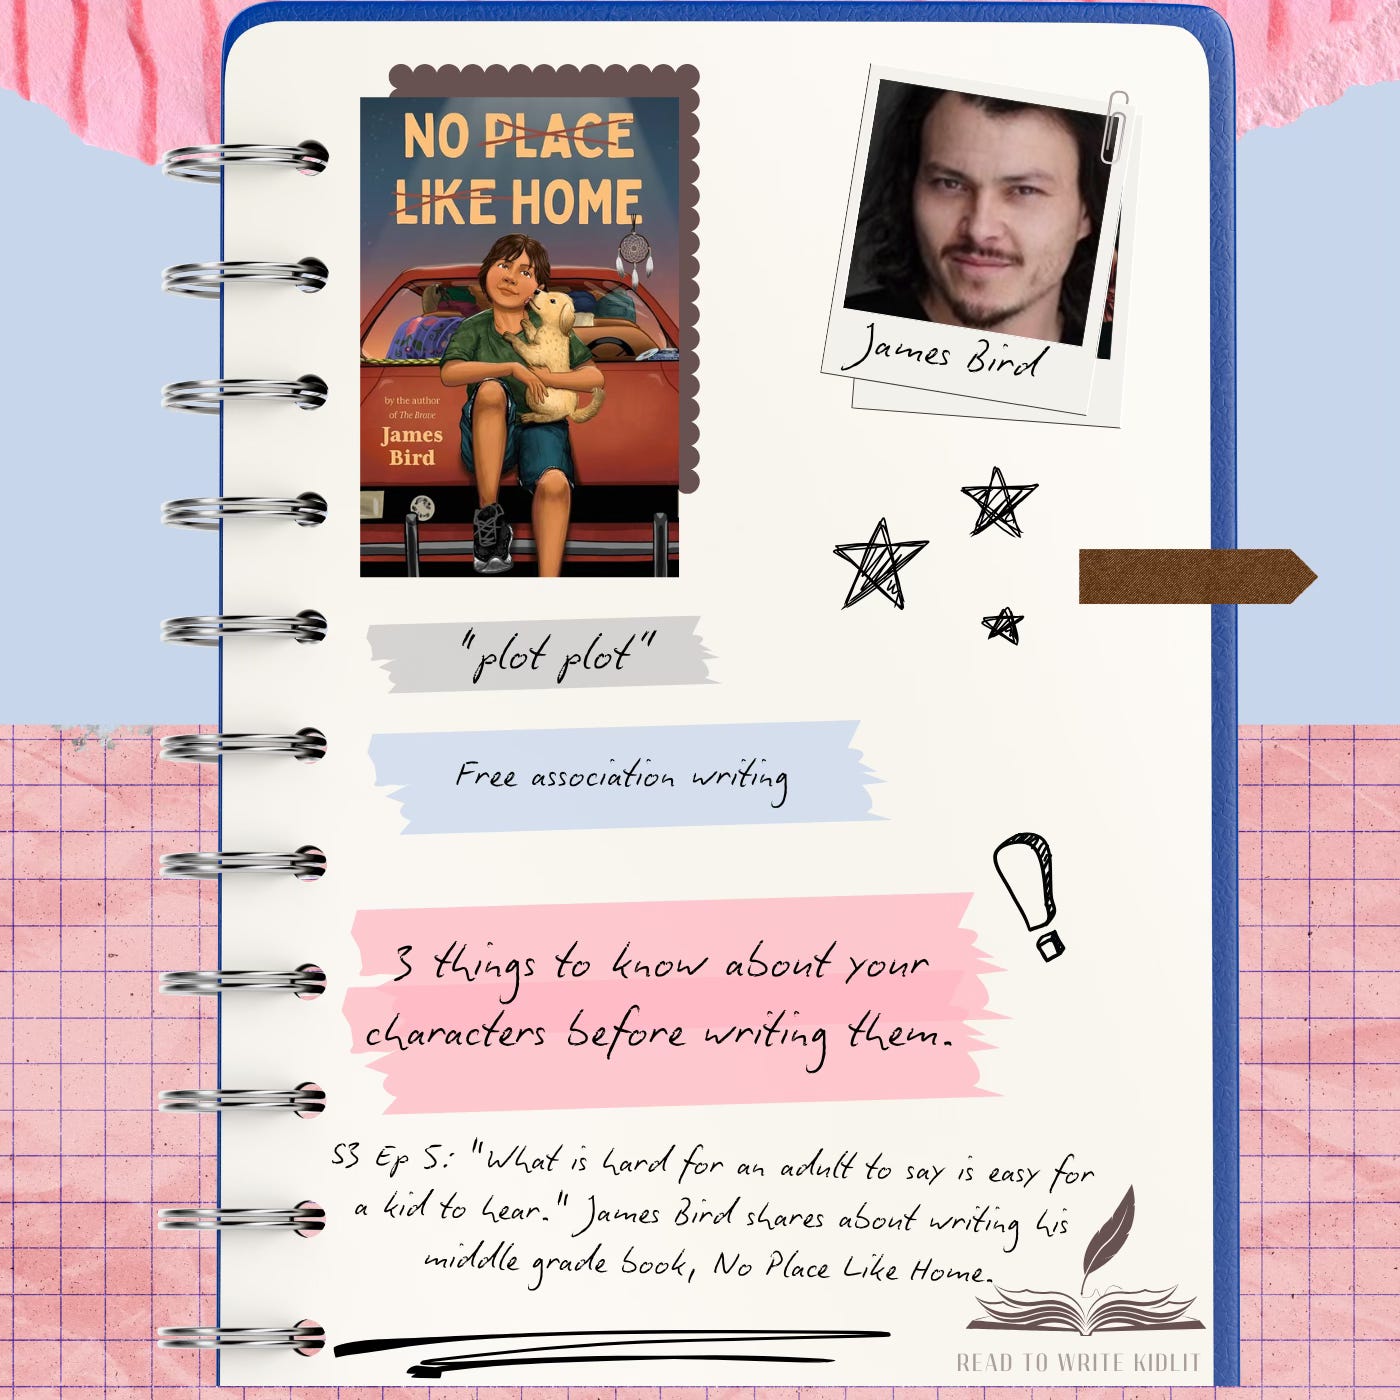 NO PLACE
LIKE HOME
by the author
of The Brave
James
Bird
James Bird
"plot plot"
Free association writing
3 things to know about your
characters before writing them.
S3 Ep 5: "What is hard for an adult to say is easy for
a kid to hear." James Bird shares about writing his
middle grade book, No Place Like Home.
READ TO WRITE KIDLIT